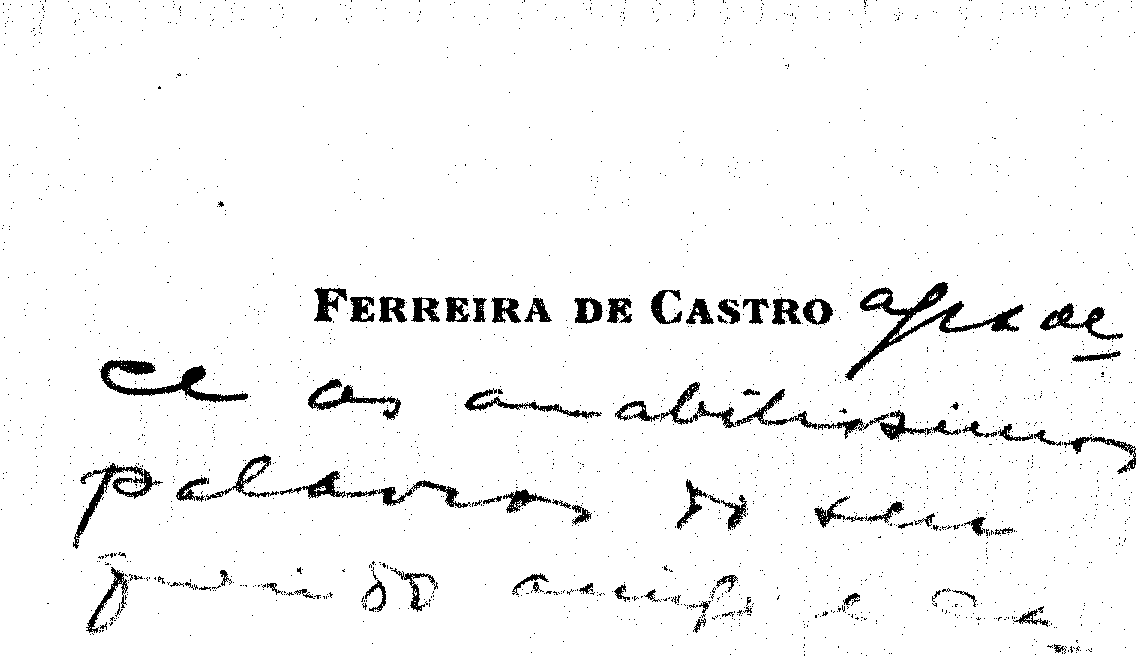 FERREIRA DE CASTRO agrade-
ce as amabilíssimas
palavras do seu
querido amigo e ca